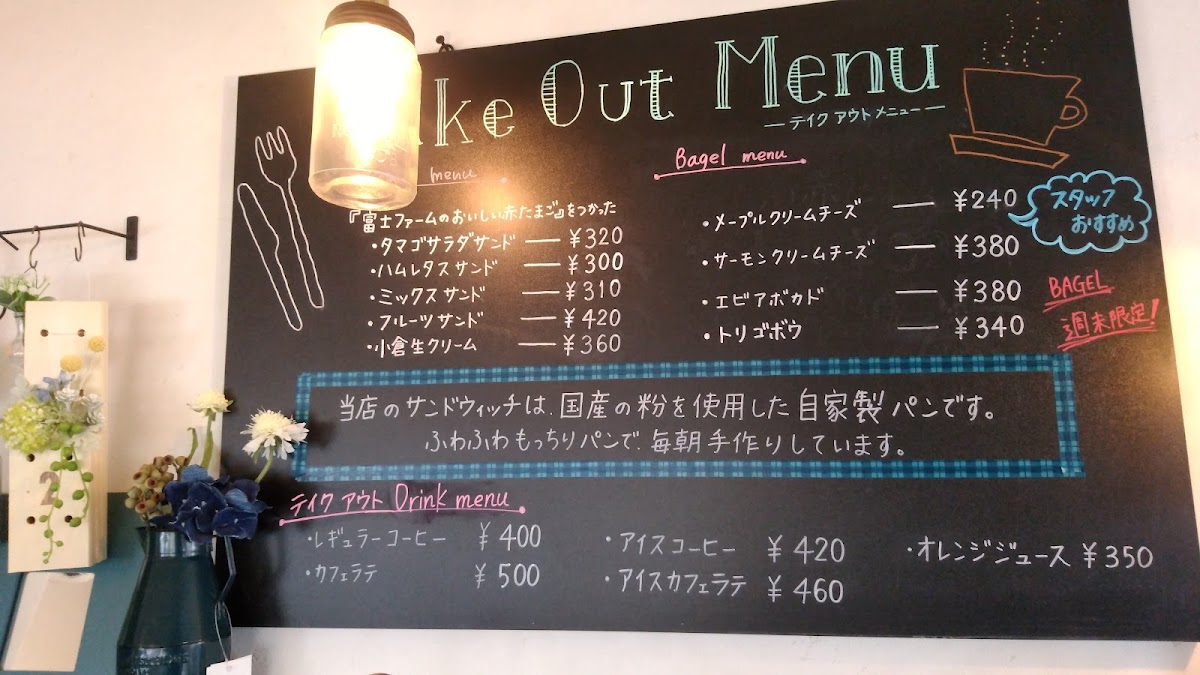 ke Out Menu
ーテイクアウトメニューー
menu
『富士ファームのおいしい赤たまご』をつかった
・タマゴサラダサンド ― ¥320
・ハムレタスサンド ― ¥300
・ミックスサンド ― ¥310
・フルーツサンド ― ¥420
・小倉生クリーム ― ¥360
Bagel menu
・メープルクリームチーズ ― ¥240
・サーモンクリームチーズ ― ¥380
・エビアボカド ― ¥380
・トリゴボウ ― ¥340
スタッフ
おすすめ
BAGEL
週末限定!
当店のサンドウィッチは、国産の粉を使用した自家製パンです。
ふわふわもっちりパンで、毎朝手作りしています。
テイクアウト Drink menu
・レギュラーコーヒー ¥400
・カフェラテ ¥500
・アイスコーヒー ¥420
・アイスカフェラテ ¥460
・オレンジジュース ¥350